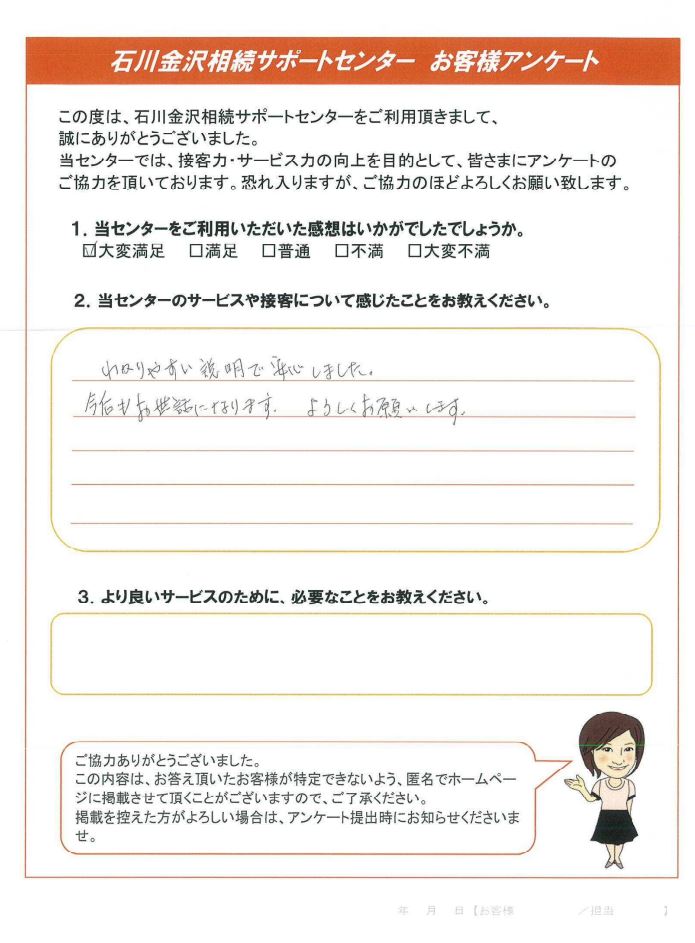 石川金沢相続サポートセンター　お客様アンケート
この度は、石川金沢相続サポートセンターをご利用頂きまして、
誠にありがとうございました。
当センターでは、接客力・サービス力の向上を目的として、皆さまにアンケートの
ご協力を頂いております。恐れ入りますが、ご協力のほどよろしくお願い致します。
1．当センターをご利用いただいた感想はいかがでしたでしょうか。
☑大変満足　□満足　□普通　□不満　□大変不満
2．当センターのサービスや接客について感じたことをお教えください。
わかりやすい説明で安心しました。
今後もお世話になります。よろしくお願いします。
3．より良いサービスのために、必要なことをお教えください。
ご協力ありがとうございました。
この内容は、お答え頂いたお客様が特定できないよう、匿名でホームペー
ジに掲載させて頂くことがございますので、ご了承ください。
掲載を控えた方がよろしい場合は、アンケート提出時にお知らせくださいま
せ。
年　月　日【お客様　　　　／担当　　　　】